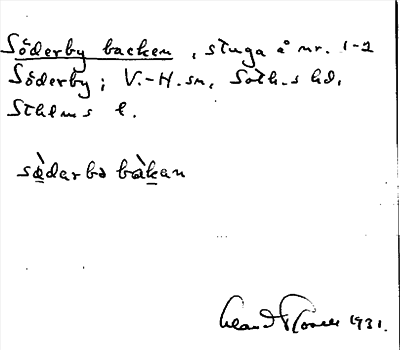 Söderby backen, stuga å nr. 1-2
Söderby; V.-H. sn, Soth.s hd,
Sthlms l.
sǿdarbo bàkan
1931.